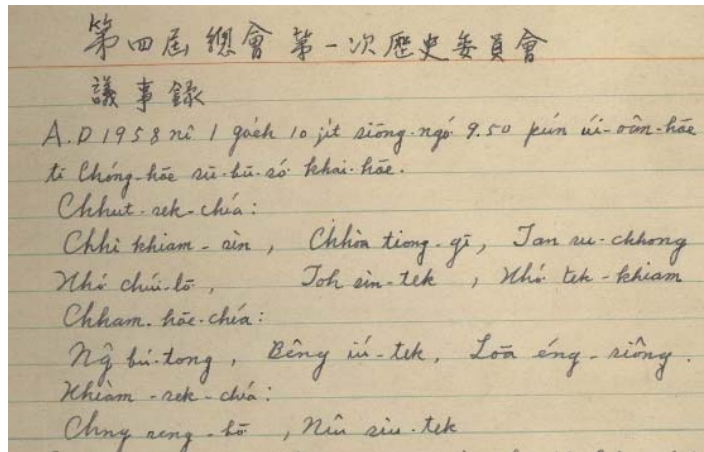 第四屆總會第一次歷史委員會
議事錄
A.D 1958 nî 1 goe̍h 10 ji̍t siōng-ngó͘ 9.50 pún úi-oân-hōe
tī Chóng-hōe sū-bū-só͘ khai-hōe.
Chhut-sek-chiá:
Chhì khiam-sìn, Chhòa tiong-gī, Tan su-chhong
Khó͘ chúi-lō͘, Toh sìn-tek, Khó͘ tek-khiam
Chham-hōe-chiá:
N̂g bú-tong, Bêng iú-tek, Lōa éng-siông.
Khiàm-sek-chiá:
Chng seng-hō, Niû siu-tek